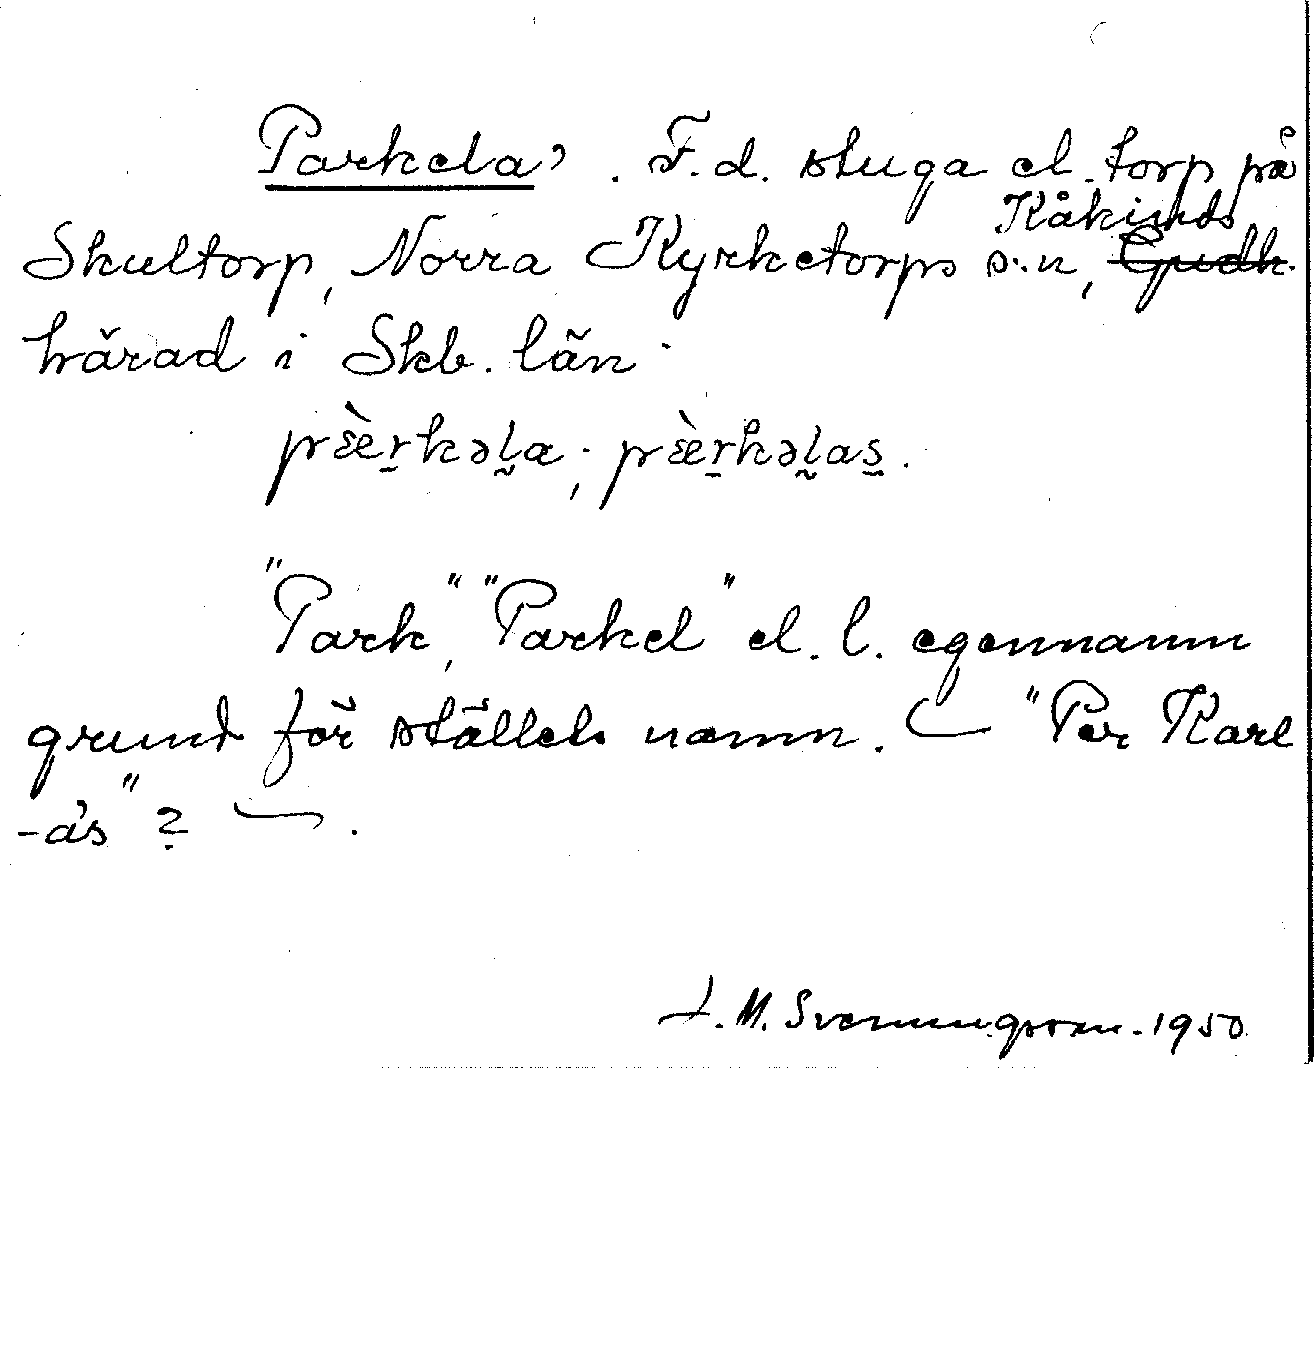 Parkela’. F.d. stuga el. torp på
Skultorp, Norra Kyrketorps s:n, Kåkinds ~~Gudh.~~
härad i Skb. län.
pæ̀ræ̠rkəl̰a; pæ̀r̠kəl̰as̰.
"Park", "Parkel" el. l. egennamn
grund för ställets namn. ( "Per Karl
-a's"? ).
J. M. Svenningsson. 1950